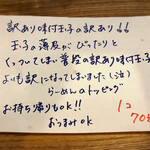 訳あり味付玉子の訳あり!!
玉子の薄皮がぴったりと
くっついてしまい普段の味付玉子
よりも訳に なってしまいました(泣)
らーめんのトッピング
お持ち帰りもOK!!
おつまみOK
1コ
70